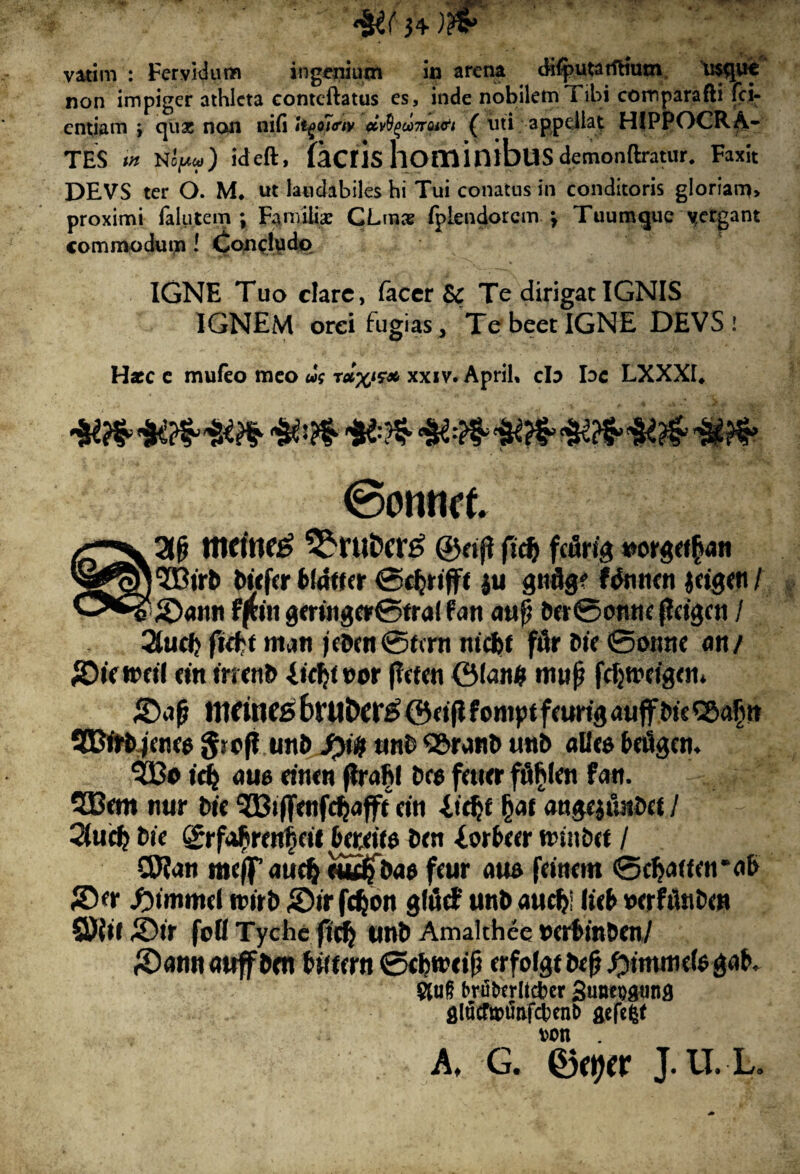 34
vatim : Fervidum ingenium in arena diſputatſtium usque
non impiger athleta conteſtatus es, inde nobilem Tibi comparaſti ſci-
entiam ; quæ non niſi ἱεροῖσιν ἀνθρώποισι ( uti appellat HIPPOCRA-
TES in Νόμῳ) ideſt, ſacris hominibus demonſtratur. Faxit
DEVS ter O. M. ut laudabiles hi Tui conatus in conditoris gloriam,
proximi ſalutem ; Familiæ CLmæ ſplendorem ; Tuumque vergant
commodum ! Concludo
IGNE Tuo clare, ſacer & Te dirigat IGNIS
IGNEM orci fugias, Te beet IGNE DEVS !
Hæc e muſeo meo ὡς τάχιϛα xxiv. April. cIↃ Iↄc LXXXI.
Sonnet.
DAß meines Bruders Geiſt ſich feürig vorgethan
Wird dieſer blätter Schrifft zu gnüge können zeigen /
Dann kein geringer Stral kan auß der Sonne ſteigen /
Auch ſieht man jeden Stern nicht für die Sonne an /
Die weil ein irrend Licht vor ſteten Glantz muß ſchweigen.
Daß meines bruders Geiſt kompt feurig auff die Bahn
Wird jenes Froſt und Hitz und Brand und alles beügen.
Wo ich aus einen ſtrahl des feuer fühlen kan.
Wem nur die Wiſſenſchafft ein Licht hat angezündet /
Auch die Erfahrenheit bereits den Lorbeer windet /
Man meſſ' auch euch das feur aus ſeinem Schatten ab
Der Himmel wird Dir ſchon glück und auch lieb verkünden
Mit Dir ſoll Tyche ſich und Amalthée verbinden/
Dann auff den bittern Schweiß erfolgt deß Himmels gab.
Auß brüderlicher Zuneygung
glückwünſchend geſetzt
von
A. G. Geyer J. U. L.